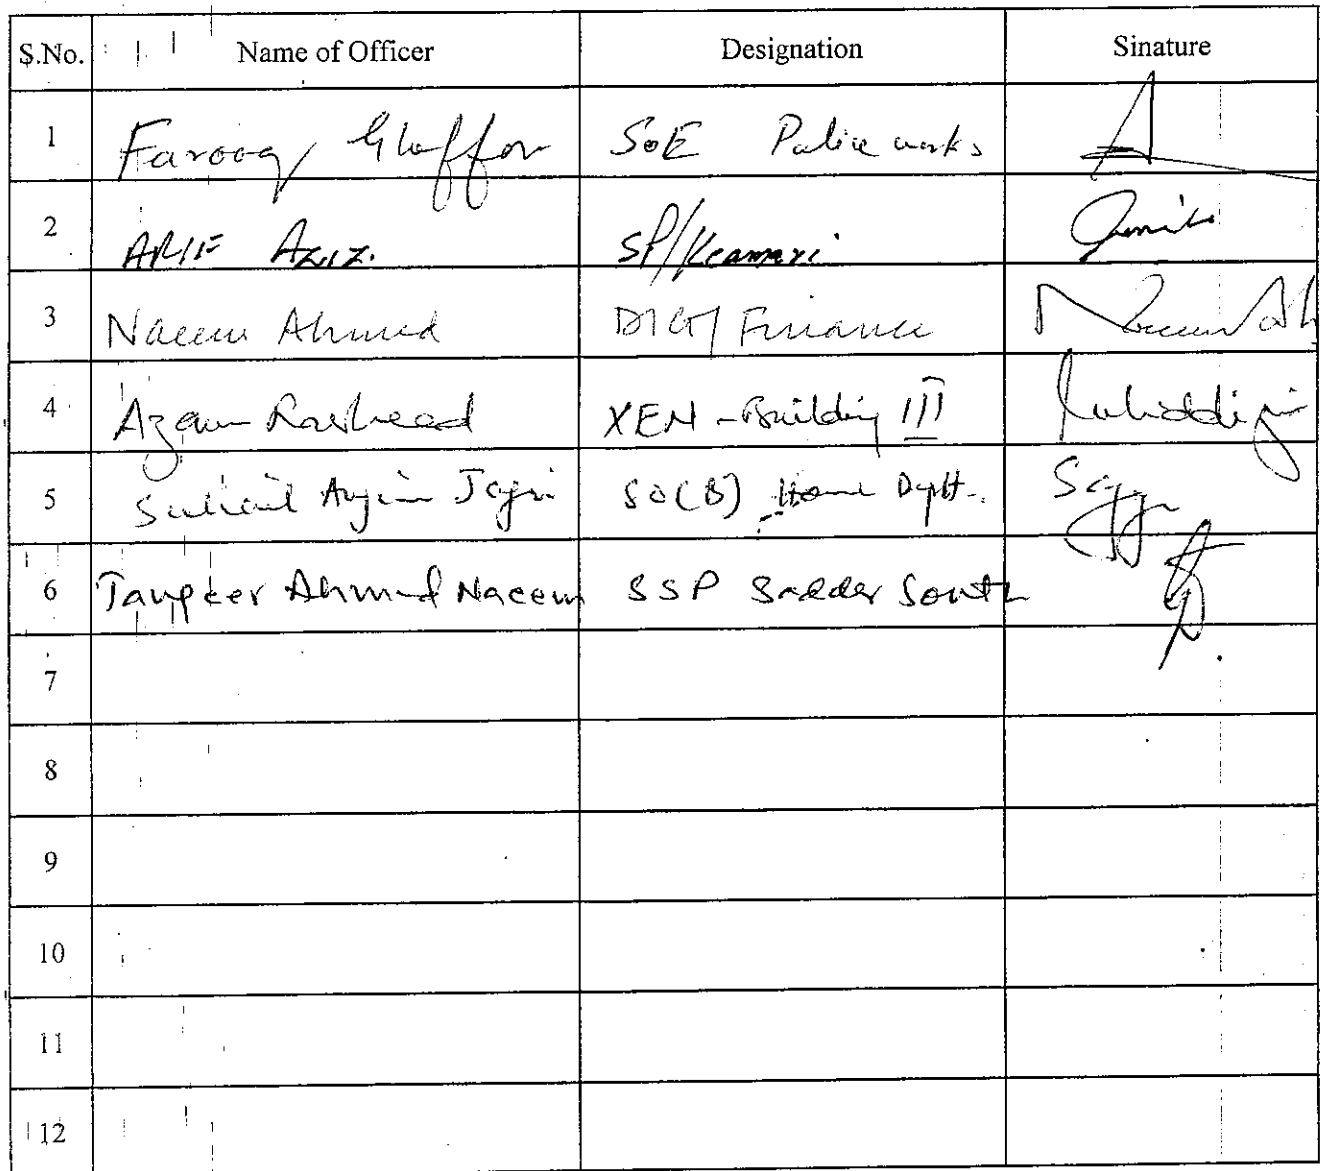 S.No. Name of Officer Designation Sinature
1 Farooq Ghaffar SoE Police works
2 ARIF AZIZ. SP/Keamari
3 Naeem Ahmed DIG/Finance
4 Azam Rasheed XEN-Building III
5 SO(B) Home Deptt.
6 Ahmed Naeem SSP Sadder South
7
8
9
10
11
12